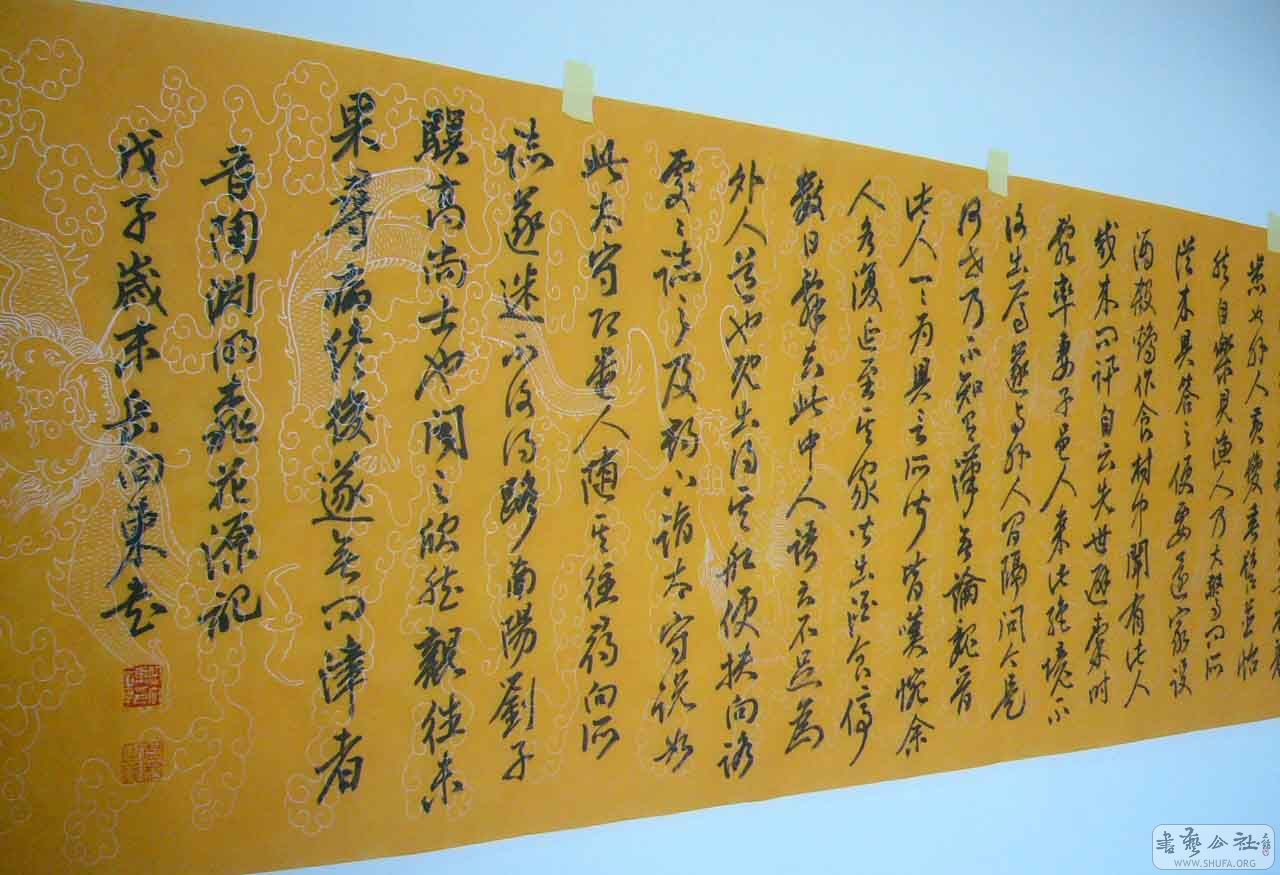 悉如外人黄髮垂髫並怡
然自樂見漁人乃大驚問所
從来具答之便要還家設
酒殺鷄作食村中聞有此人
咸来問訊自云先世避秦時
亂率妻子邑人来此絶境不
復出焉遂与外人間隔問今是
何世乃不知有漢無論魏晋
此人一一為具言所聞皆嘆惋余
人各復延至其家皆出酒食停
數日辞去此中人語云不足為
外人道也既出得其船便扶向路
處々誌之及郡下詣太守説如
此太守即遣人随其往尋向所
誌遂迷不復得路南陽劉子
驥高尚士也聞之欣然親往未
果尋病終後遂無問津者
晋陶渊明桃花源記
戊子歲末岳向東書
書藝公社
WWW.SHUFA.ORG